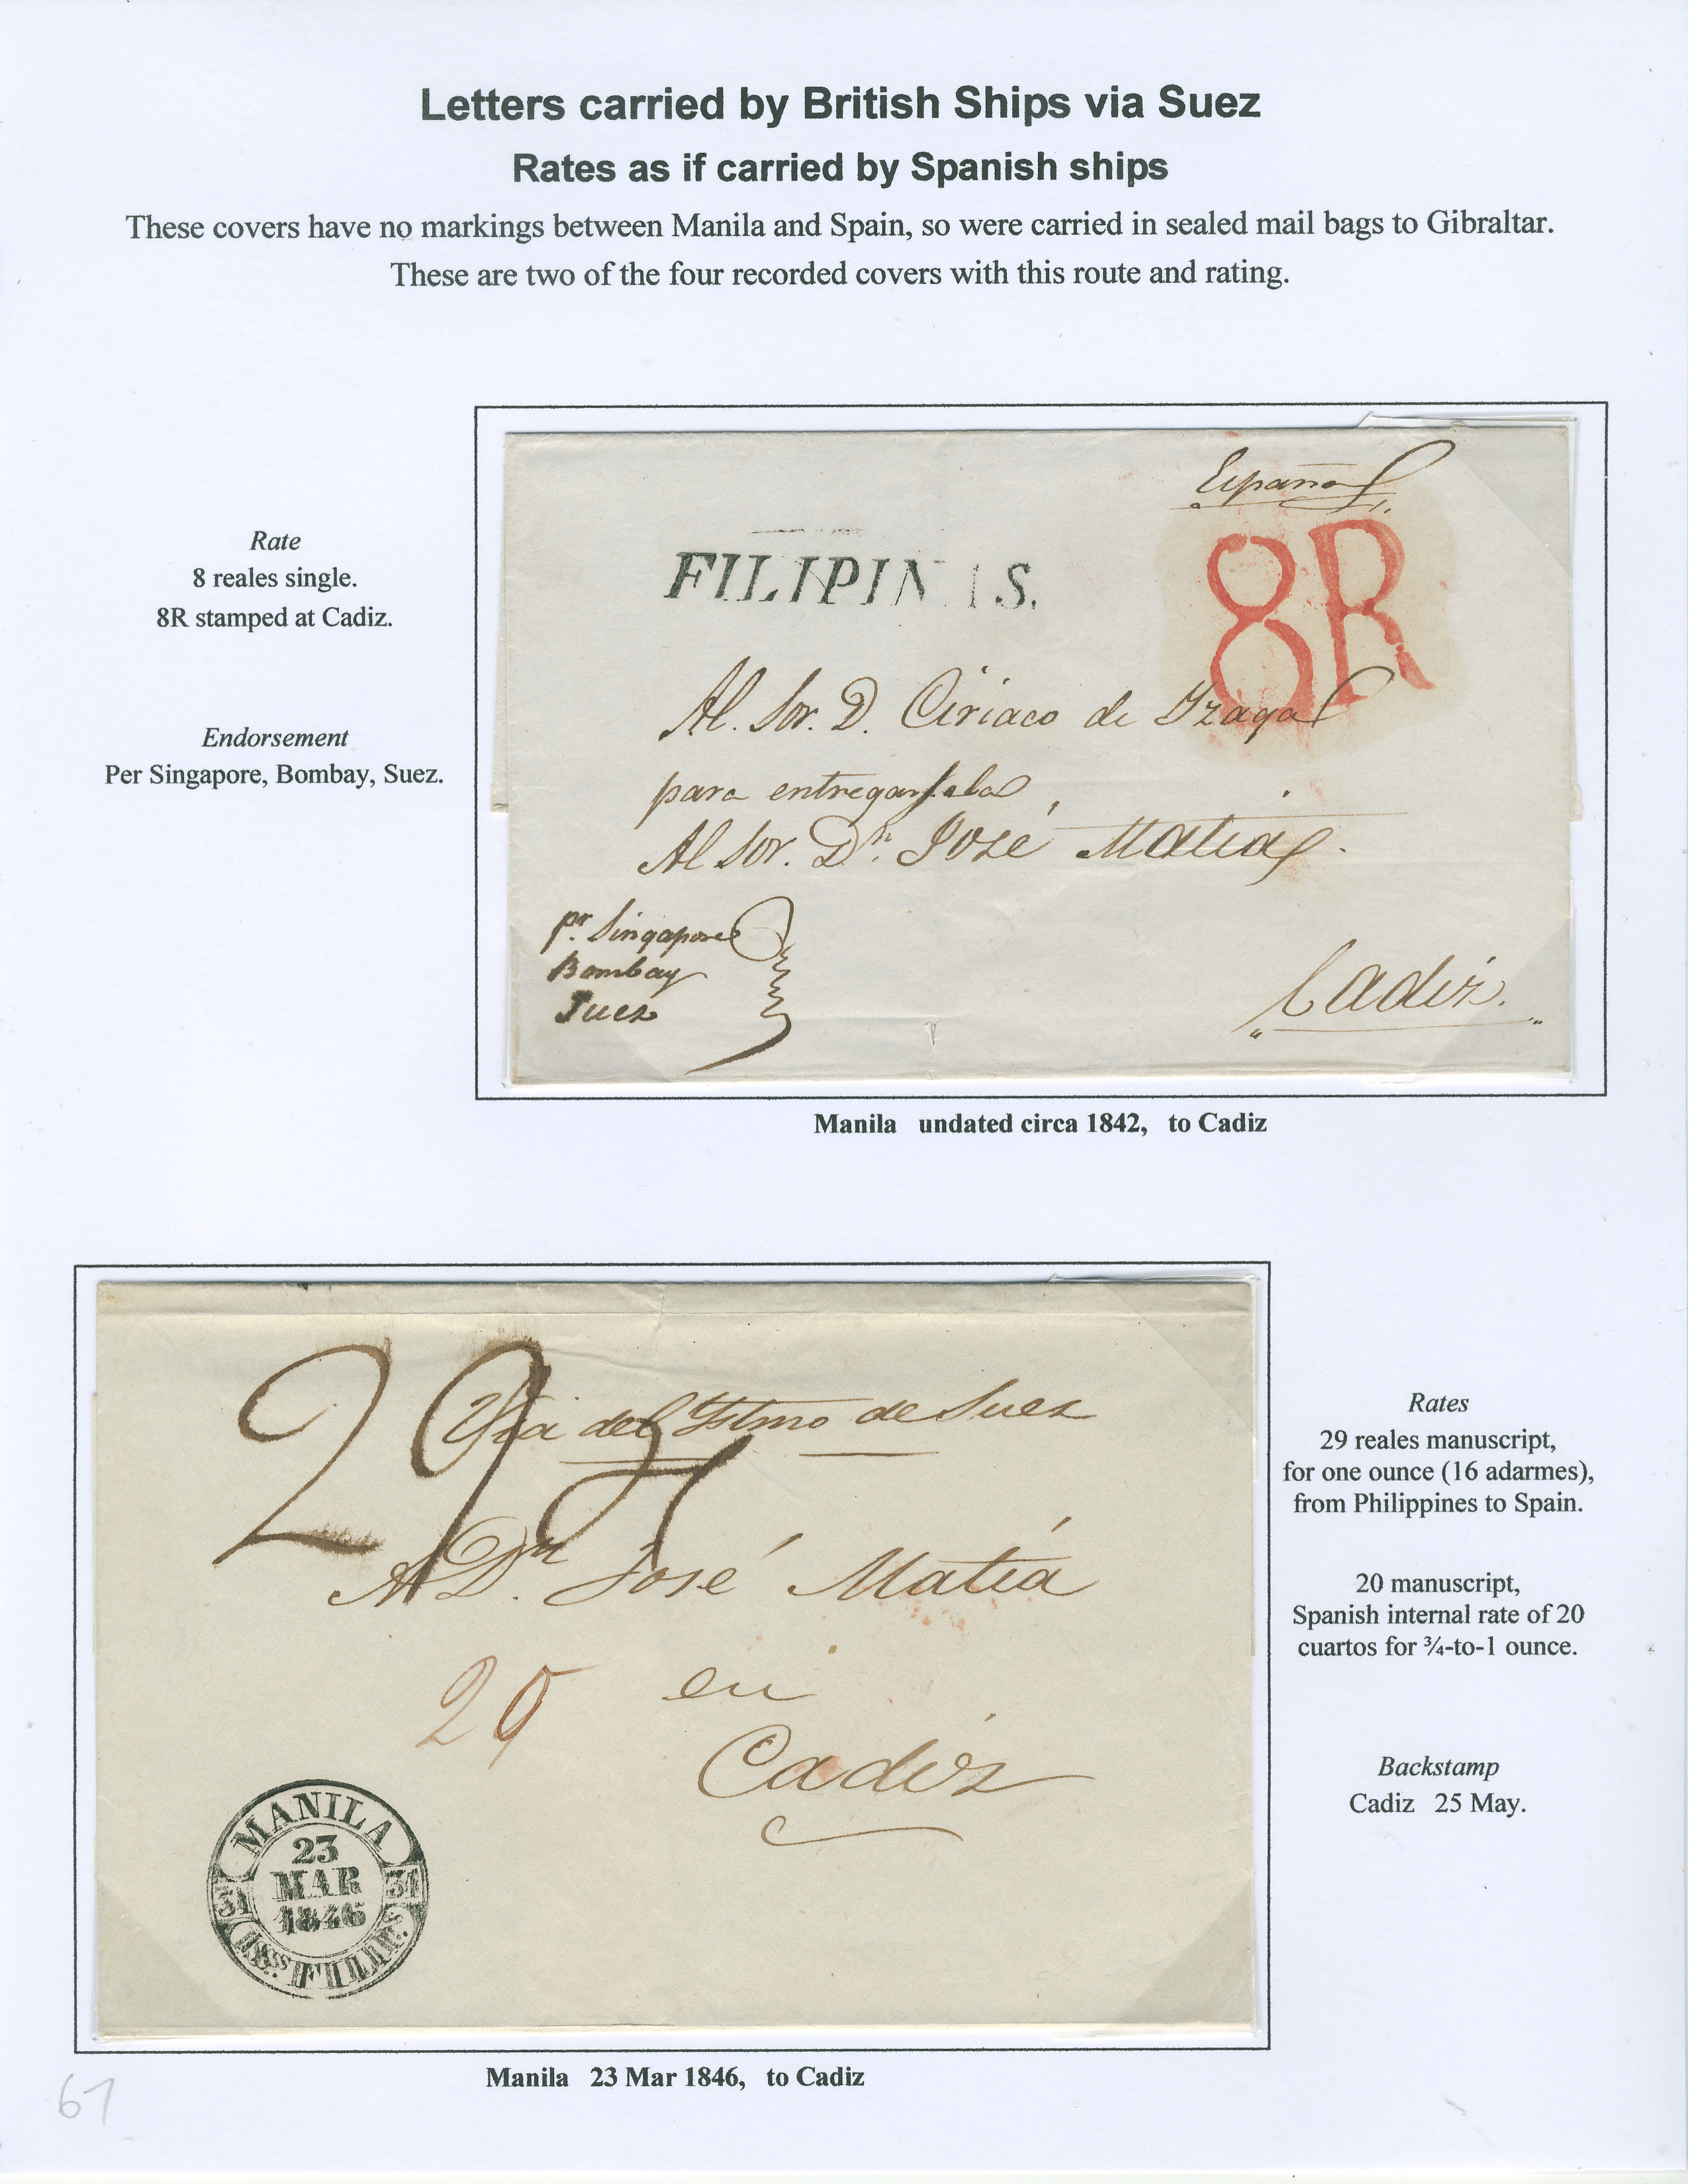 Letters carried by British Ships via Suez
Rates as if carried by Spanish ships
These covers have no markings between Manila and Spain, so were carried in sealed mail bags to Gibraltar.
These are two of the four recorded covers with this route and rating.
Rate
8 reales single.
8R stamped at Cadiz.
Endorsement
Per Singapore, Bombay, Suez.
España
FILIPINAS.
8R
Al. Sor. D. Ciriaco de Yzaga
para entregarsela
Al Sor. Dn. José Matia.
pr. Singapore
Bombay
Suez
Cadiz.
Manila undated circa 1842, to Cadiz
29 r
Via del Istmo de Suez
A Dn. José Matía
20
en
Cadiz
MANILA
23
MAR
1846
31 31
Manila 23 Mar 1846, to Cadiz
Rates
29 reales manuscript,
for one ounce (16 adarmes),
from Philippines to Spain.
20 manuscript,
Spanish internal rate of 20
cuartos for ¾-to-1 ounce.
Backstamp
Cadiz 25 May.
67